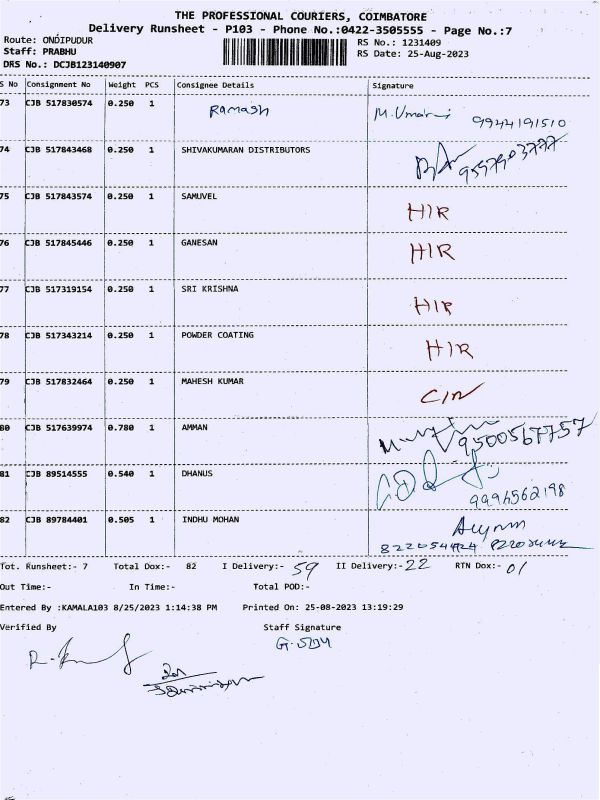 THE PROFESSIONAL COURIERS, COIMBATORE
Delivery Runsheet - P103 - Phone No.:0422-3505555 - Page No.:7
Route: ONDIPUDUR
Staff: PRABHU
DRS No.: DCJB123140907
RS No.: 1231409
RS Date: 25-Aug-2023
S No Consignment No Weight PCS Consignee Details Signature
73 CJB 517830574 0.250 1 Ramash 9944191510
74 CJB 517843468 0.250 1 SHIVAKUMARAN DISTRIBUTORS
75 CJB 517843574 0.250 1 SAMUVEL HIR
76 CJB 517845446 0.250 1 GANESAN HIR
77 CJB 517319154 0.250 1 SRI KRISHNA HIR
78 CJB 517343214 0.250 1 POWDER COATING HIR
79 CJB 517832464 0.250 1 MAHESH KUMAR
80 CJB 517639974 0.780 1 AMMAN 9500567757
81 CJB 89514555 0.540 1 DHANUS
82 CJB 89784401 0.505 1 INDHU MOHAN
Tot. Runsheet:- 7 Total Dox:- 82 I Delivery:- 59 II Delivery:- 22 RTN Dox:- 01
Out Time:- In Time:- Total POD:-
Entered By :KAMALA103 8/25/2023 1:14:38 PM Printed On: 25-08-2023 13:19:29
Verified By Staff Signature